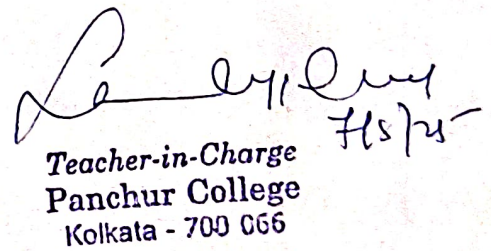 7/5/25
Teacher-in-Charge
Panchur College
Kolkata - 700 066